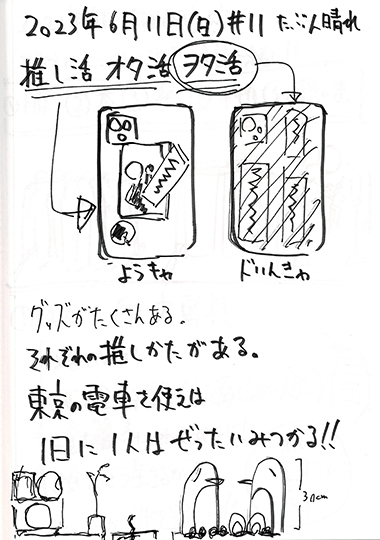 2023年6月11日(日)#11 たぶん晴れ
推し活 オタ活 ヲタ活
ようきゃ
どいんきゃ
グッズがたくさんある。
それぞれの推しかたがある。
東京の電車を使えば
1日に1人はぜったいみつかる!!
30cm